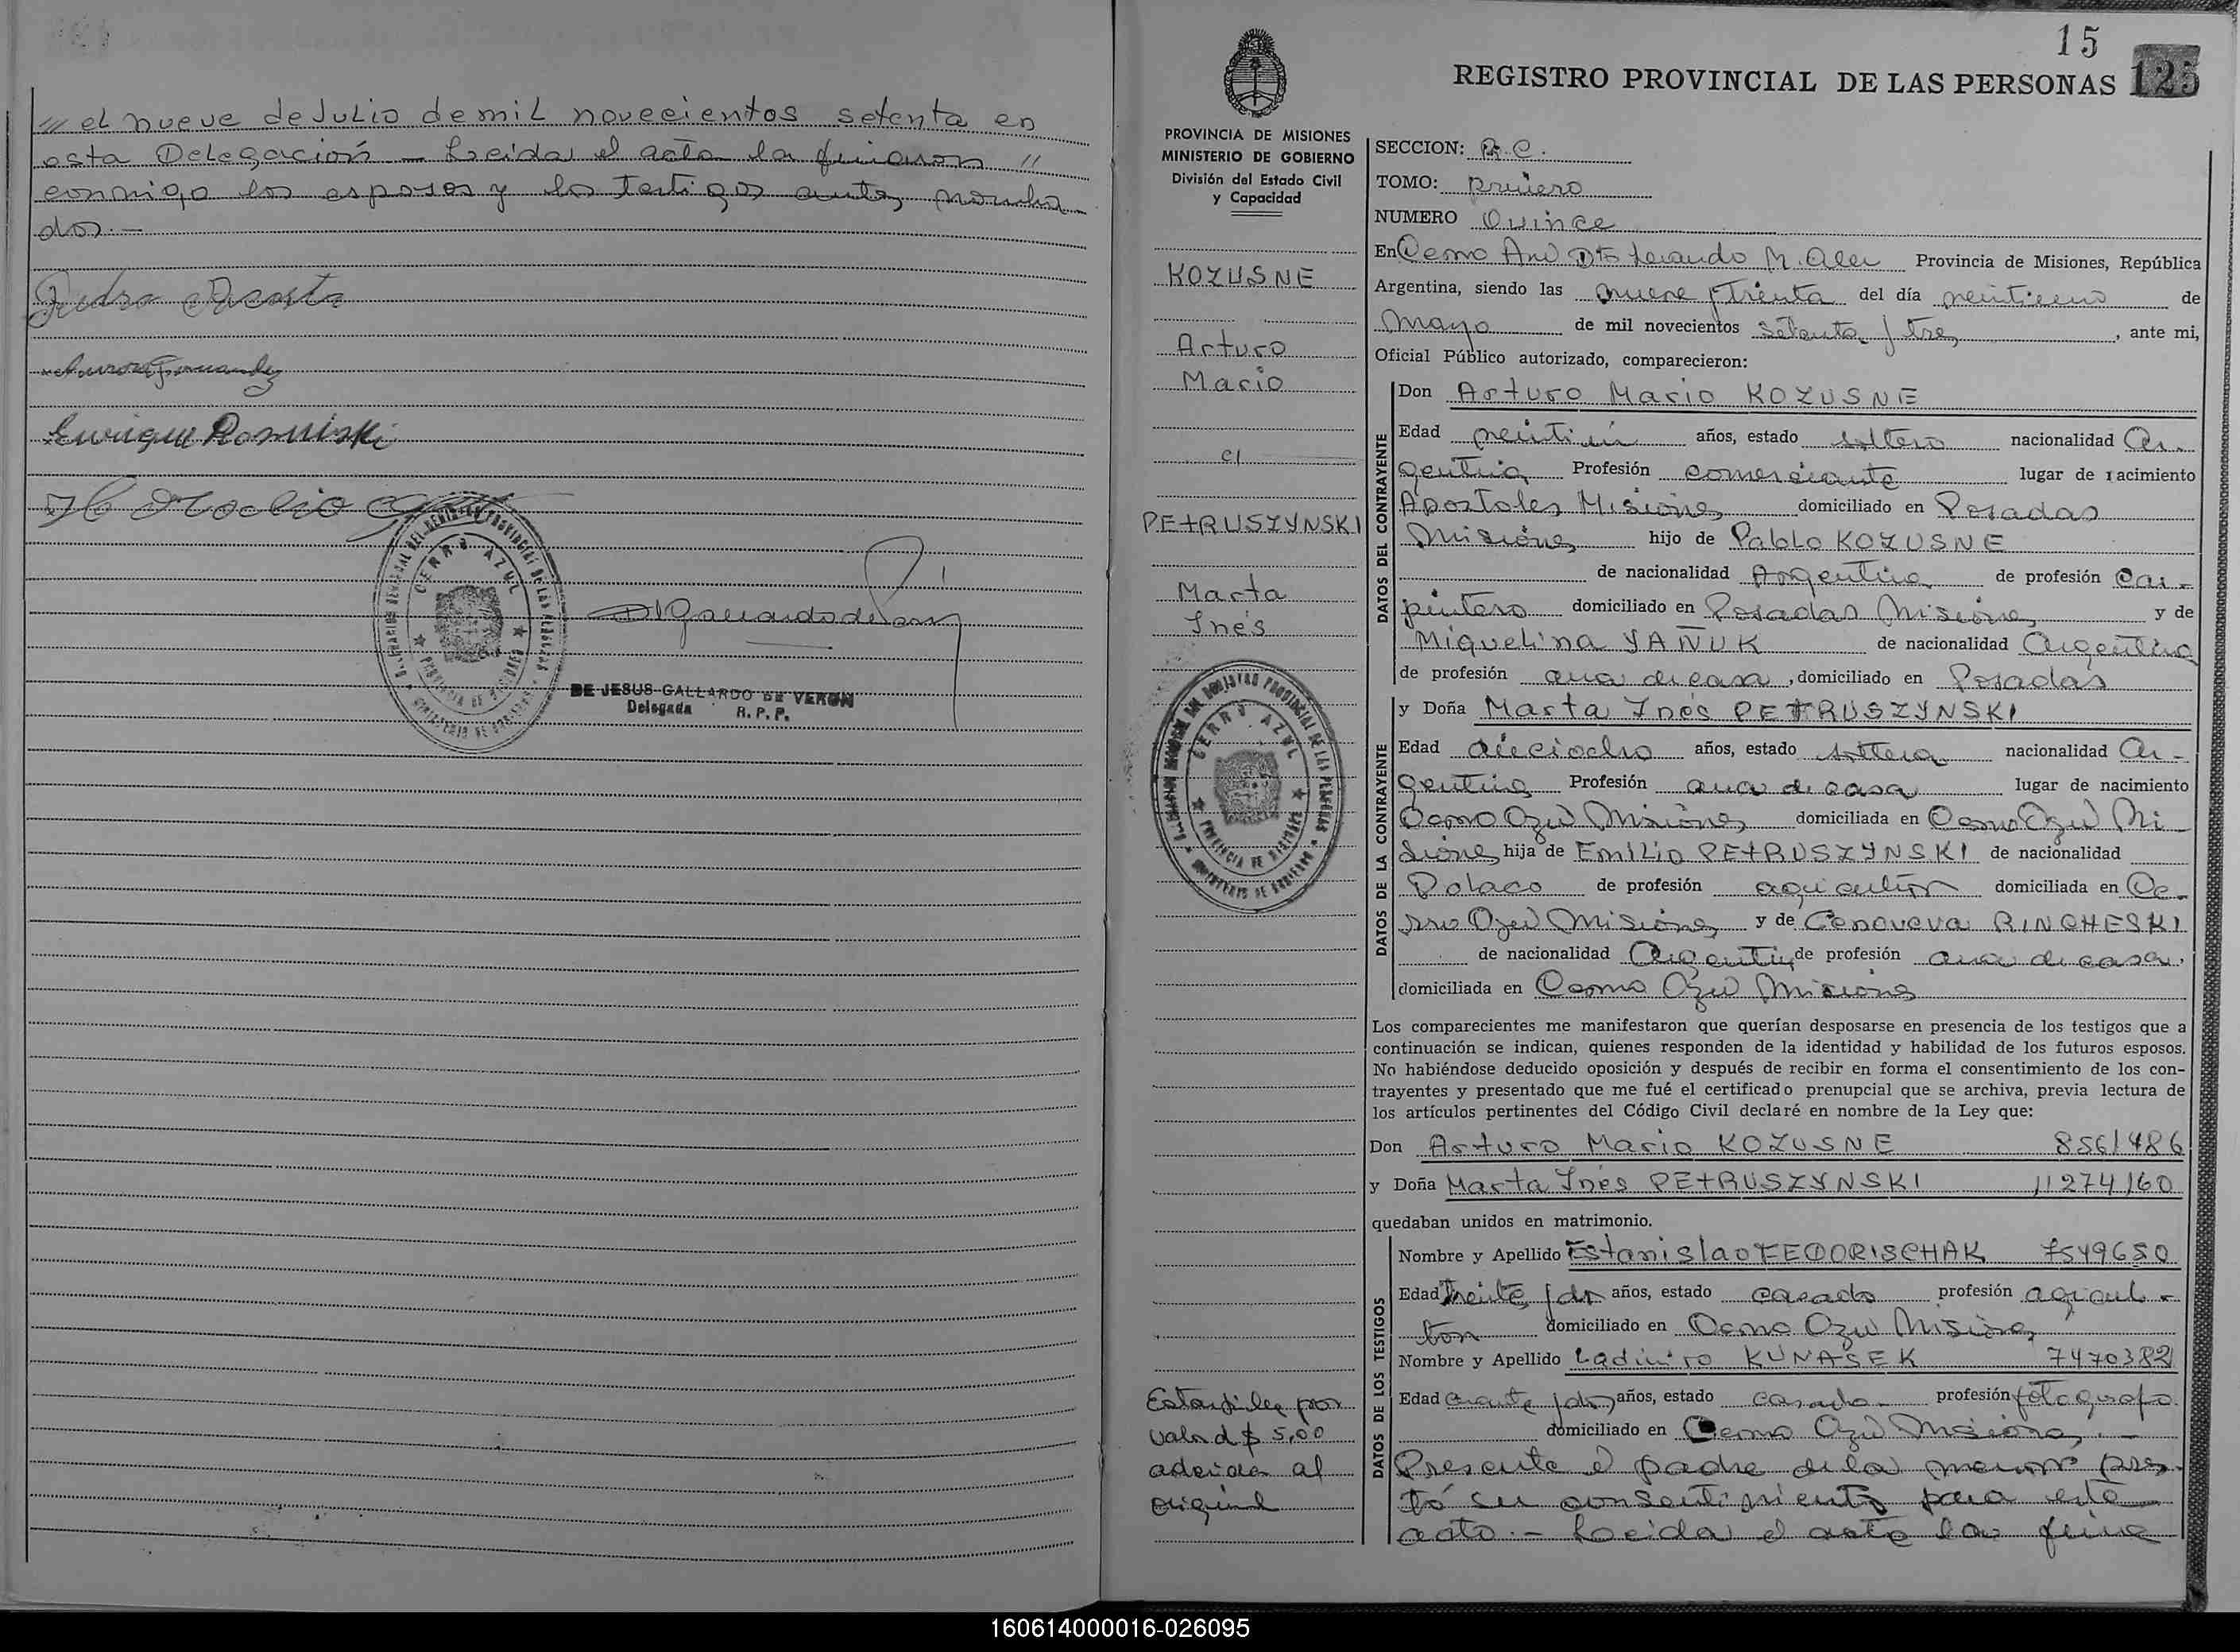 // el nueve de Julio de mil novecientos setenta en
esta Delegación — Leida el acta la firmaron //
conmigo los esposos y los testigos antes nombra-
dos.—
Enrique
CERRO AZUL
PROVINCIA DE MISIONES
DE JESUS GALLARDO DE VERON
Delegada R. P. P.
15
125
REGISTRO PROVINCIAL DE LAS PERSONAS
PROVINCIA DE MISIONES
MINISTERIO DE GOBIERNO
División del Estado Civil
y Capacidad
KOZUSNE
Arturo
Mario
c/
PETRUSZYNSKI
Marta
Inés
CERRO AZUL
PROVINCIA DE MISIONES
Estampillas por
valor d $ 5,00
aderidas al
original
SECCION: R.C.
TOMO: primero
NUMERO Quince
En Cerro Azul Dto Leandro N. Alem Provincia de Misiones, República
Argentina, siendo las nueve y treinta del día veintiuno de
Mayo de mil novecientos setenta y tres, ante mi,
Oficial Público autorizado, comparecieron:
DATOS DEL CONTRAYENTE
Don Arturo Mario KOZUSNE
Edad veintiún años, estado soltero nacionalidad Ar-
gentina Profesión comerciante lugar de nacimiento
Apostoles Misiones domiciliado en Posadas
Misiones hijo de Pablo KOZUSNE
de nacionalidad Argentina de profesión Car-
pintero domiciliado en Posadas Misiones y de
Miquelina YAÑUK de nacionalidad Argentina
de profesión ama de casa, domiciliado en Posadas
DATOS DE LA CONTRAYENTE
y Doña Marta Inés PETRUSZYNSKI
Edad dieciocho años, estado soltera nacionalidad Ar-
gentina Profesión ama de casa lugar de nacimiento
Cerro Azul Misiones domiciliada en Cerro Azul Mi-
siones hija de Emilio PETRUSZYNSKI de nacionalidad
Polaco de profesión agricultor domiciliada en Ce-
rro Azul Misiones y de Genoveva RINCHESKI
de nacionalidad Argentin de profesión ama de casa,
domiciliada en Cerro Azul Misiones
Los comparecientes me manifestaron que querían desposarse en presencia de los testigos que a
continuación se indican, quienes responden de la identidad y habilidad de los futuros esposos.
No habiéndose deducido oposición y después de recibir en forma el consentimiento de los con-
trayentes y presentado que me fué el certificado prenupcial que se archiva, previa lectura de
los artículos pertinentes del Código Civil declaré en nombre de la Ley que:
Don Arturo Mario KOZUSNE 8561486
y Doña Marta Inés PETRUSZYNSKI 11274160
quedaban unidos en matrimonio.
DATOS DE LOS TESTIGOS
Nombre y Apellido Estanislao FEDORISCHAK 7549650
Edad Treinta y dos años, estado casado profesión agricul-
tor domiciliado en Cerro Azul Misiones
Nombre y Apellido Ladimiro KUNASEK 7470382
Edad años, estado casado profesión fotografo
domiciliado en Cerro Azul Misiones.—
Presente el padre de la menor pres-
tó su consentimiento para este
acto.— Leida el acta la firma
160614000016-026095